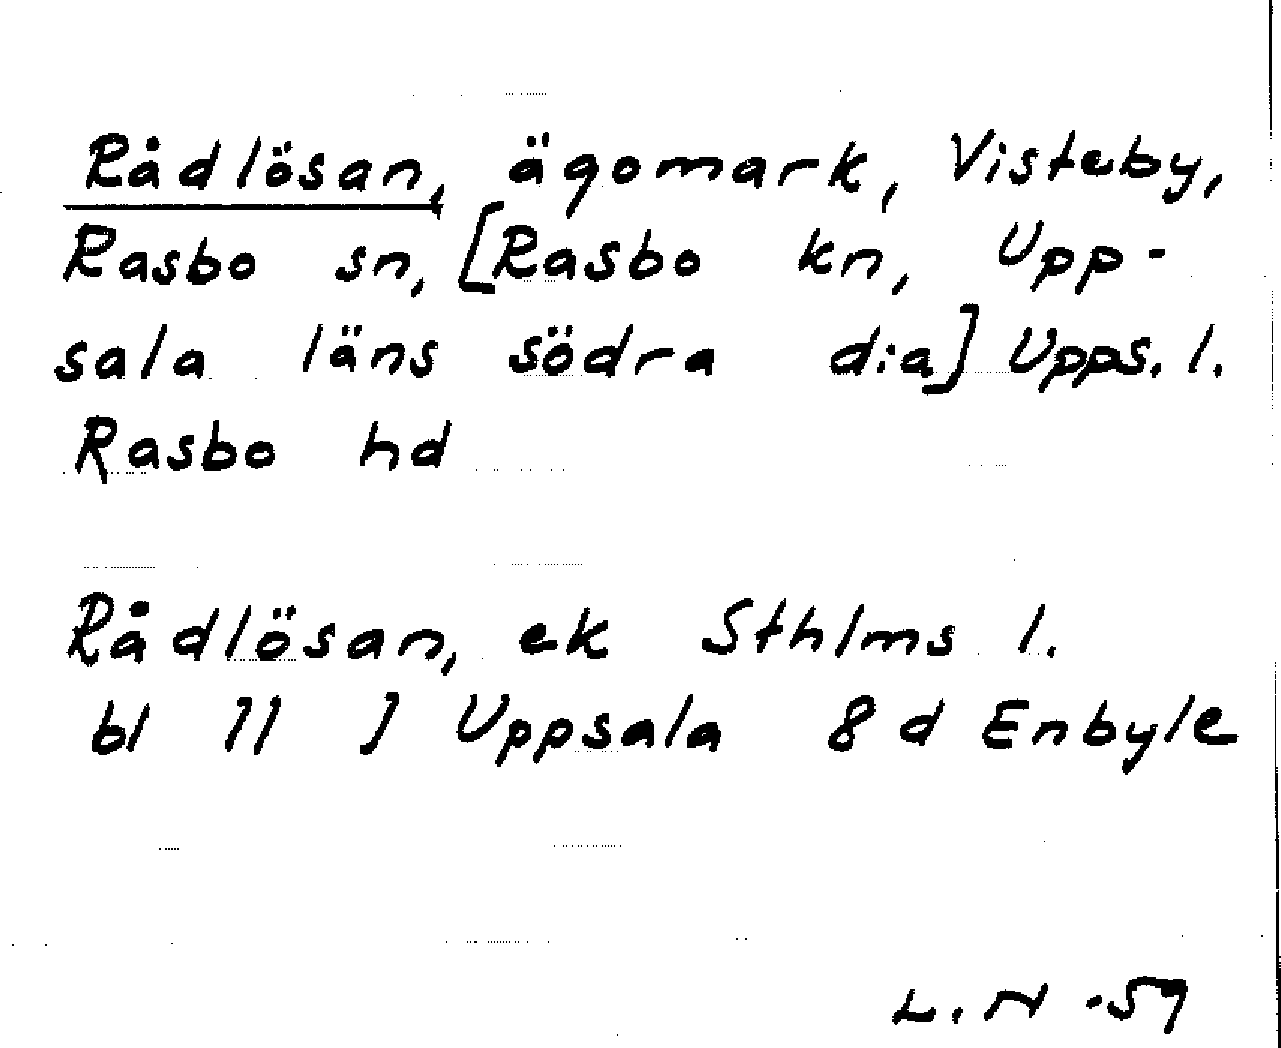 Rådlösan, ägomark, Visteby,
Rasbo sn, [Rasbo kn, Upp-
sala läns södra dia] Upps. l.
Rasbo hd
Rådlösan, ek Sthlms l.
bl 11 I Uppsala 8 d Enbyle
L. N -59